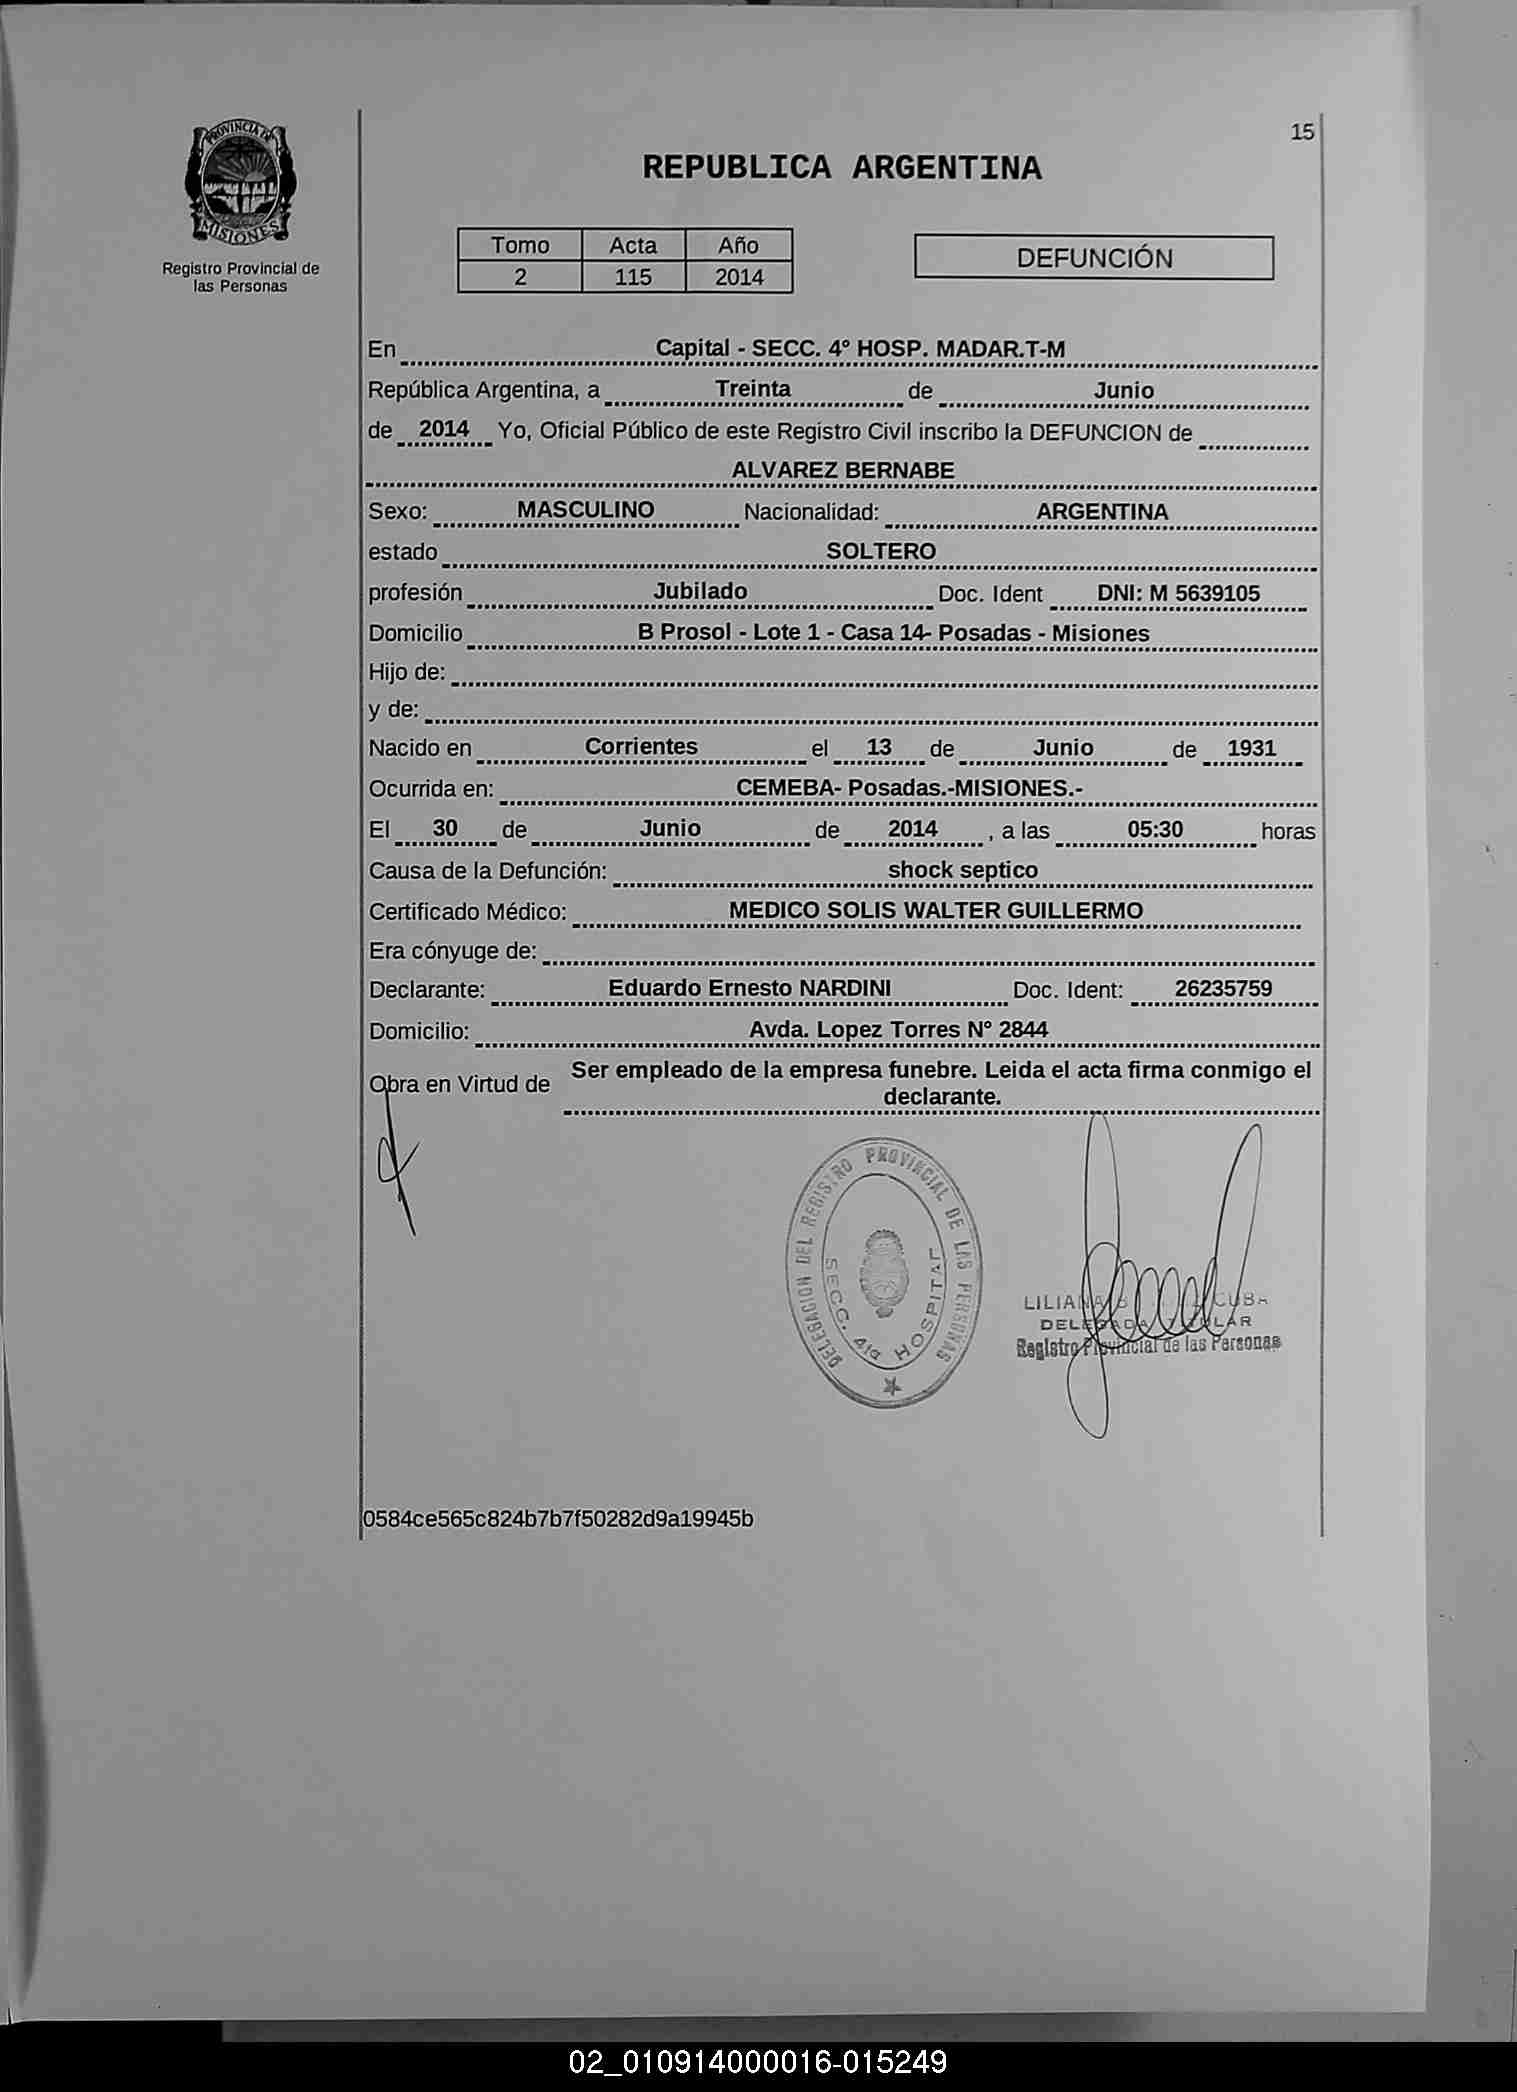 PROVINCIA DE
MISIONES
Registro Provincial de
las Personas
15
REPUBLICA ARGENTINA
Tomo Acta Año
2 115 2014
DEFUNCIÓN
En Capital - SECC. 4º HOSP. MADAR.T-M
República Argentina, a Treinta de Junio
de 2014 Yo, Oficial Público de este Registro Civil inscribo la DEFUNCION de
ALVAREZ BERNABE
Sexo: MASCULINO Nacionalidad: ARGENTINA
estado SOLTERO
profesión Jubilado Doc. Ident DNI: M 5639105
Domicilio B Prosol - Lote 1 - Casa 14- Posadas - Misiones
Hijo de:
y de:
Nacido en Corrientes el 13 de Junio de 1931
Ocurrida en: CEMEBA- Posadas.-MISIONES.-
El 30 de Junio de 2014 , a las 05:30 horas
Causa de la Defunción: shock septico
Certificado Médico: MEDICO SOLIS WALTER GUILLERMO
Era cónyuge de:
Declarante: Eduardo Ernesto NARDINI Doc. Ident: 26235759
Domicilio: Avda. Lopez Torres Nº 2844
Obra en Virtud de Ser empleado de la empresa funebre. Leida el acta firma conmigo el
declarante.
DELEGACION DEL REGISTRO PROVINCIAL DE LAS PERSONAS
SECC. 4ta HOSPITAL
LILIANA CUBA
DELEGADA TITULAR
Registro Provincial de las Personas
0584ce565c824b7b7f50282d9a19945b
02_010914000016-015249